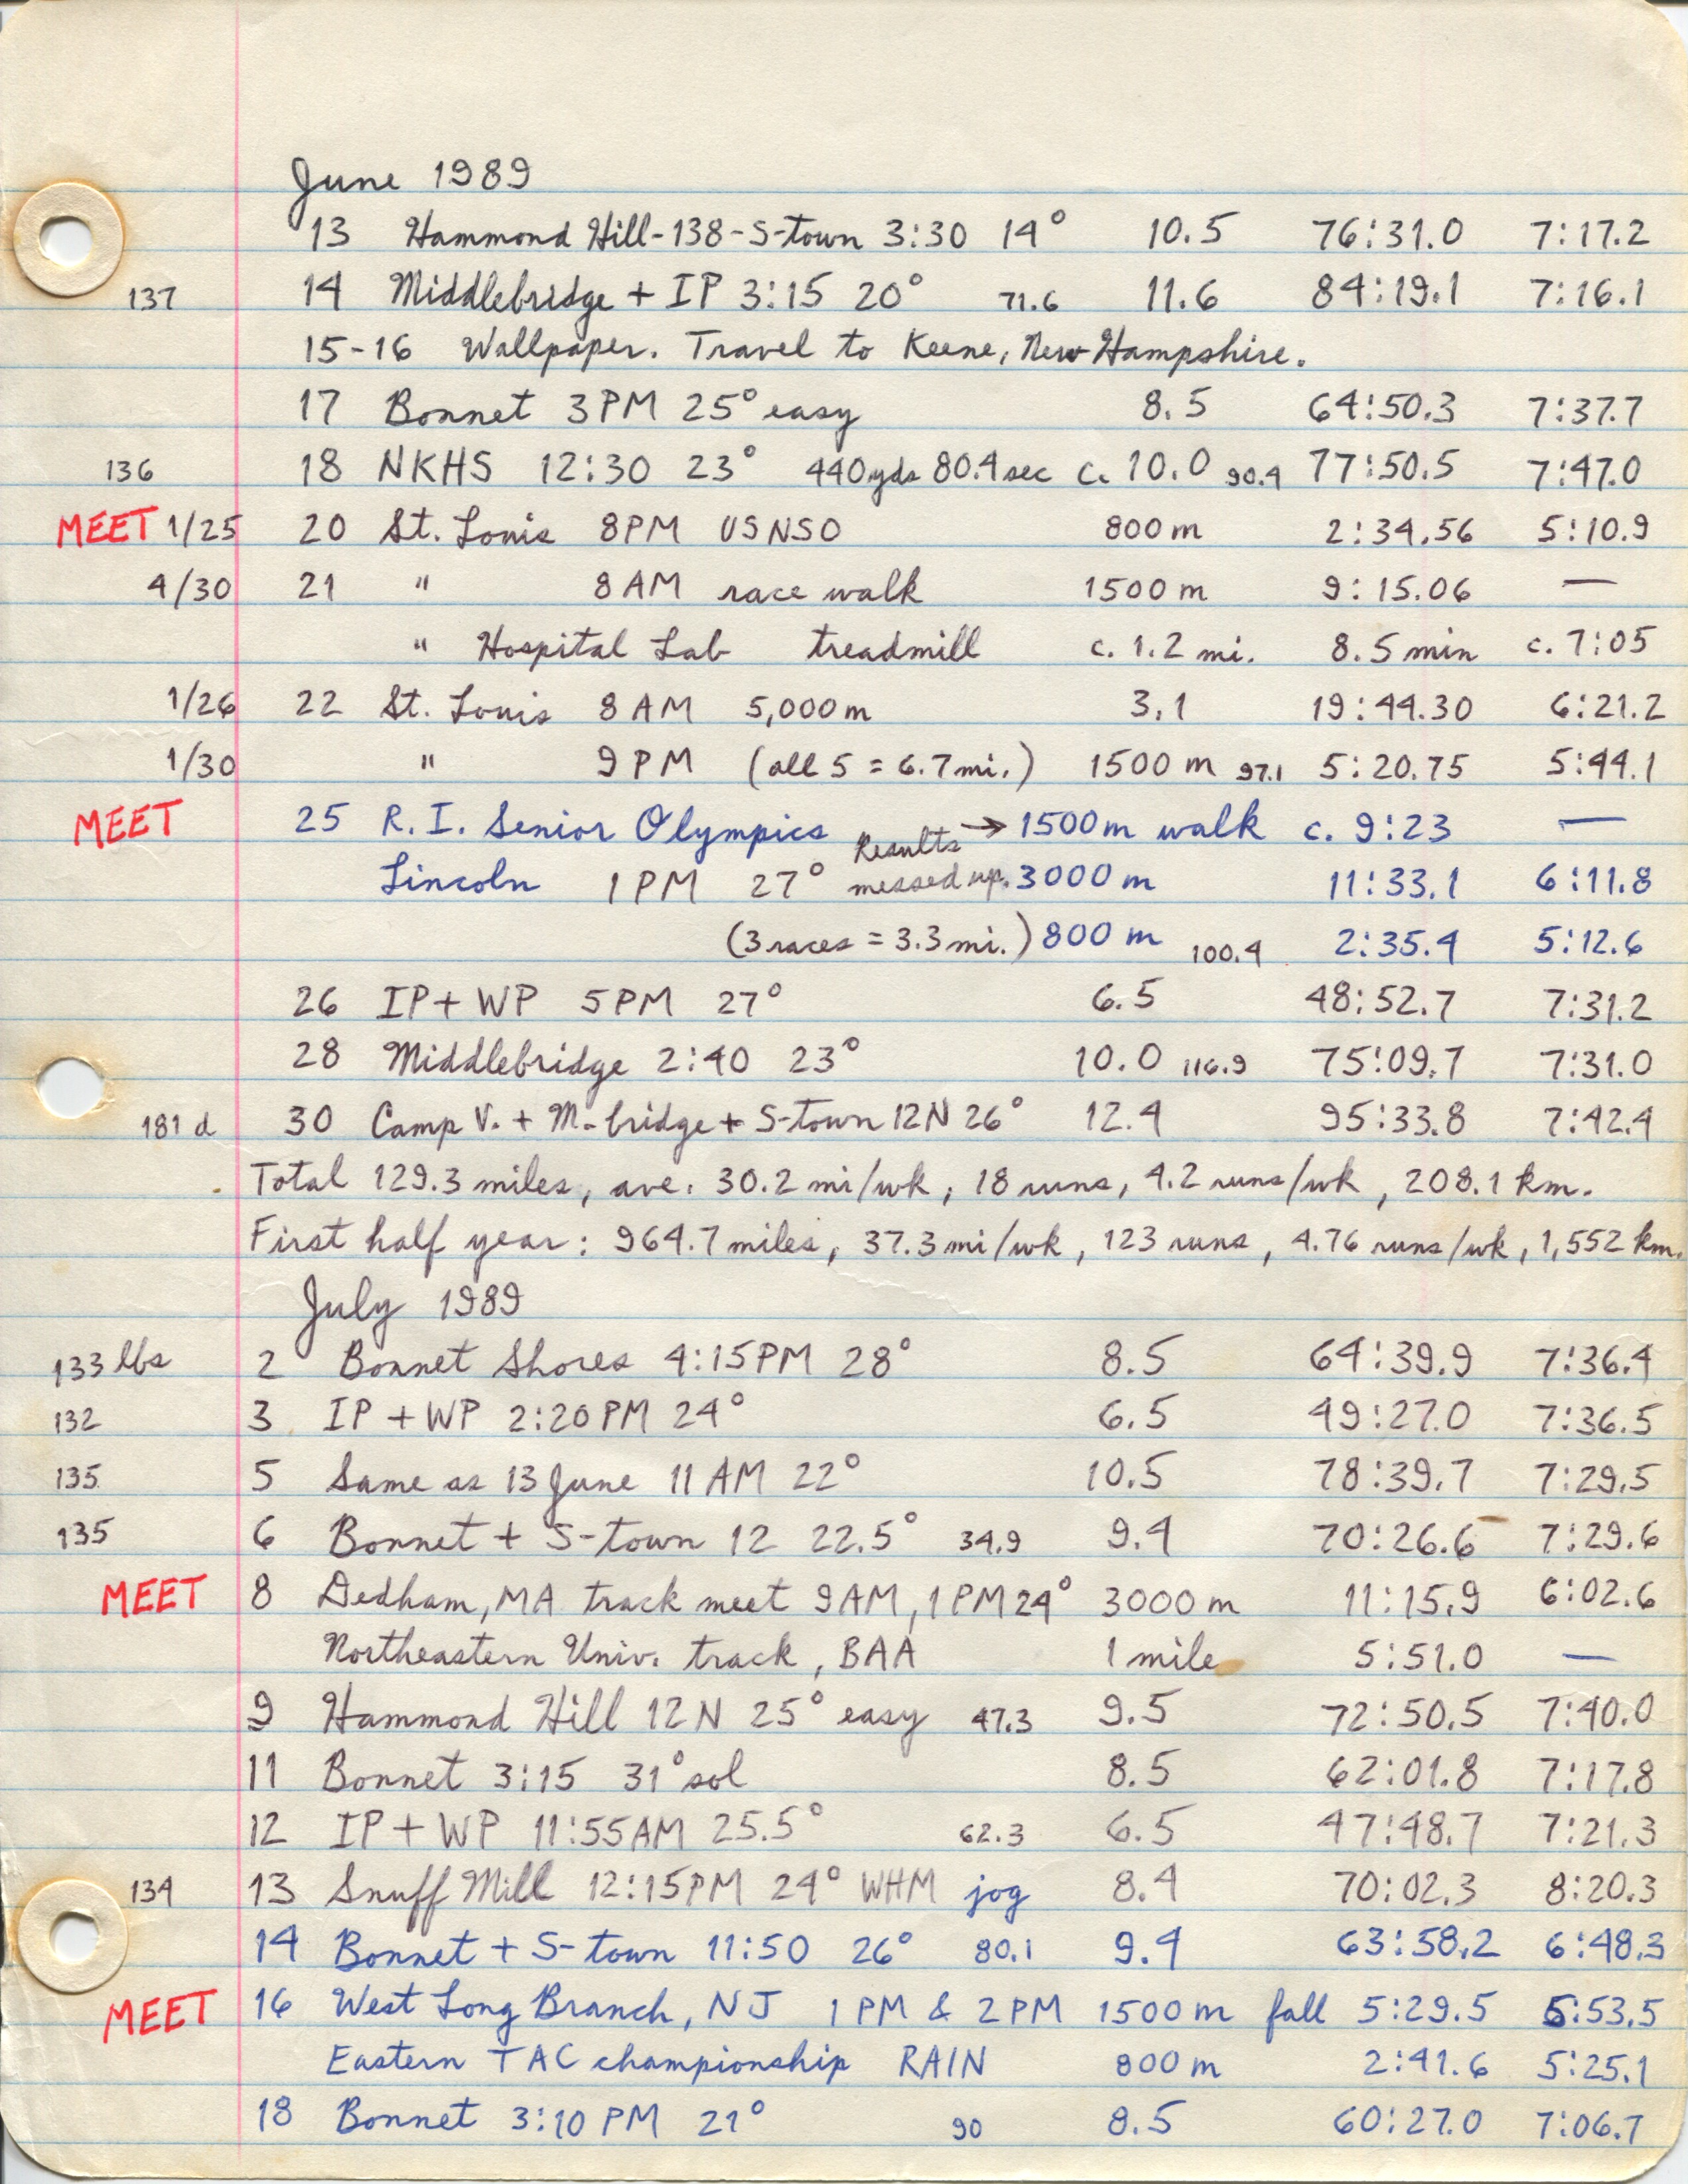 June 1989
13 Hammond Hill-138-S-town 3:30 14° 10.5 76:31.0 7:17.2
137 14 Middlebridge + IP 3:15 20° 71.6 11.6 84:19.1 7:16.1
15-16 Wallpaper. Travel to Keene, New Hampshire.
17 Bonnet 3PM 25° easy 8.5 64:50.3 7:37.7
136 18 NKHS 12:30 23° 440yds 80.4sec c. 10.0 90.4 77:50.5 7:47.0
MEET 1/25 20 St. Louis 8PM USNSO 800m 2:34.56 5:10.9
4/30 21 " 8AM race walk 1500m 9:15.06 —
" Hospital Lab treadmill c. 1.2 mi. 8.5 min c. 7:05
1/26 22 St. Louis 8AM 5,000m 3.1 19:44.30 6:21.2
1/30 " 9PM (all 5 = 6.7mi.) 1500m 97.1 5:20.75 5:44.1
MEET 25 R.I. Senior Olympics → 1500m walk c. 9:23 —
Results
Lincoln 1PM 27° messed up. 3000m 11:33.1 6:11.8
(3 races = 3.3mi.) 800m 100.4 2:35.4 5:12.6
26 IP+WP 5PM 27° 6.5 48:52.7 7:31.2
28 Middlebridge 2:40 23° 10.0 116.9 75:09.7 7:31.0
181 d 30 Camp V. + M-bridge + S-town 12N 26° 12.4 95:33.8 7:42.4
Total 129.3 miles, ave. 30.2 mi/wk, 18 runs, 4.2 runs/wk, 208.1 km.
First half year: 964.7 miles, 37.3 mi/wk, 123 runs, 4.76 runs/wk, 1,552 km.
July 1989
133 lbs 2 Bonnet Shores 4:15PM 28° 8.5 64:39.9 7:36.4
132 3 IP+WP 2:20PM 24° 6.5 49:27.0 7:36.5
135 5 Same as 13 June 11AM 22° 10.5 78:39.7 7:29.5
135 6 Bonnet + S-town 12 22.5° 34.9 9.4 70:26.6 7:29.6
MEET 8 Dedham, MA track meet 9AM, 1PM 24° 3000m 11:15.9 6:02.6
Northeastern Univ. track, BAA 1 mile 5:51.0 —
9 Hammond Hill 12N 25° easy 47.3 9.5 72:50.5 7:40.0
11 Bonnet 3:15 31° sol 8.5 62:01.8 7:17.8
12 IP+WP 11:55AM 25.5° 62.3 6.5 47:48.7 7:21.3
134 13 Snuff Mill 12:15PM 24° WHM jog 8.4 70:02.3 8:20.3
14 Bonnet + S-town 11:50 26° 80.1 9.4 63:58.2 6:48.3
MEET 16 West Long Branch, NJ 1PM & 2PM 1500m fall 5:29.5 5:53.5
Eastern TAC championship RAIN 800m 2:41.6 5:25.1
18 Bonnet 3:10 PM 21° 90 8.5 60:27.0 7:06.7